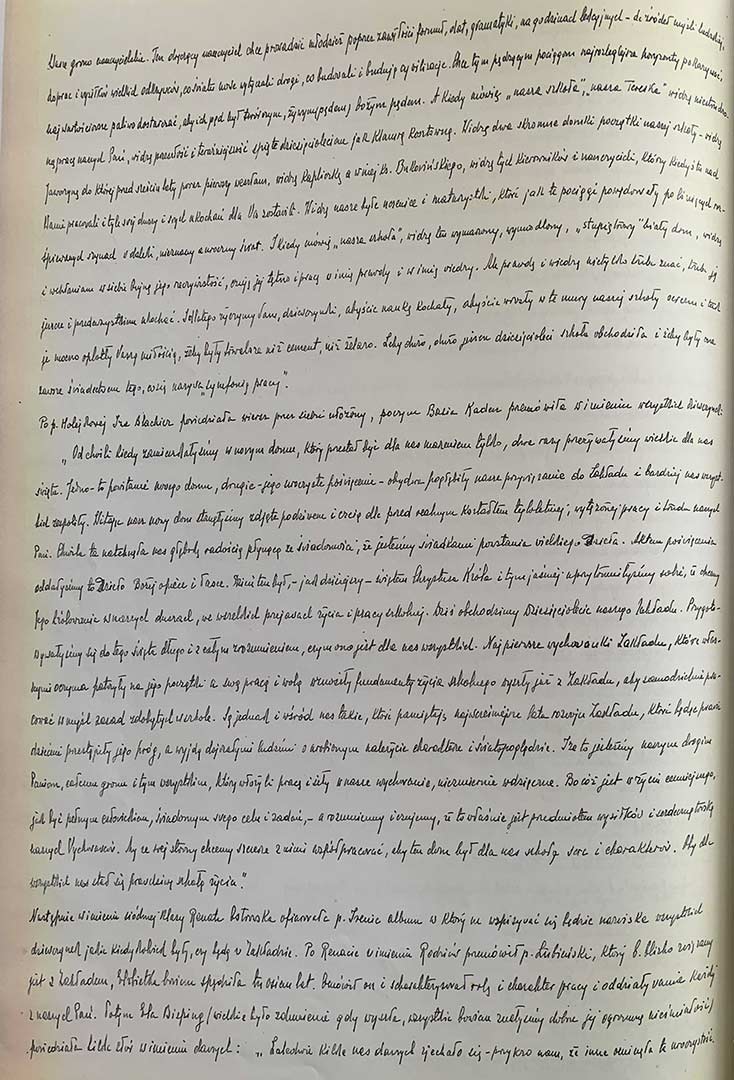 Wasze grono nauczycielskie. Ten obyczaj nauczyciel chce prowadzić młodzież poprzez zawiłości formuł, dat, gramatyki, na godzinach lekcyjnych - do źródeł myśli ludzkiej,
do prac i wysiłków wielkich odkrywców, co światu nowe wytykali drogi, co budowali i budują cywilizacje. Chce tym pędzącym pociągom najrozleglejsze horyzonty pokazywać,
najwartościowsze paliwo dostarczać, aby ich pęd był twórczym, żywym pędem, bożym pędem. A kiedy mówię „nasza szkoła", „nasza Tereska" widzę
na pracę naszych Pań, widzę przeszłość i teraźniejszość spiętą dziesięcioleciem jak klamrą kosztowną. Widzę dwa skromne domki początki naszej szkoły - widzę
Jaworzynę do której przed sześciu laty poraz pierwszy weszłam, widzę kapliczkę a w niej ks. Bukowińskiego, widzę tych kierowników i nauczycieli, którzy kiedyś tu nad
Wami pracowali i tyle swej duszy i swych ukochań dla Was zostawili. Widzę nasze byłe uczenice i maturzystki, które jak te pociągi powędrowały po lśniących
śpiewnych szynach w daleki, nieznany a uroczny świat. I kiedy mówię „nasza szkoła", widzę ten wymarzony, wymodlony, „stupiętrowy" biały dom, widzę
i wchłaniam w siebie bujną jego rzeczywistość, czuję jej tętno i pracę w imię prawdy i w imię wiedzy. Ale prawdę i wiedzę nietylko trzeba znać, trzeba ją
jeszcze i przedewszystkim ukochać. I dlatego życzymy Wam, dziewczynki, abyście naukę kochały, abyście wrosły w te mury naszej szkoły sercem i tak
je mocno oplotły Waszą miłością, żeby były trwalsze niż cement, niż żelazo. Żeby dużo, dużo jeszcze dziesięcioleci szkoła obchodziła i żeby były one
zawsze świadectwem tego, co się nazywa „symfonią pracy".
Po p. Iza Blacher powiedziała wiersz przez siebie ułożony, poczym Basia Kaden przemówiła w imieniu wszystkich dziewczynek:
„Od chwili kiedy zamieszkałyśmy w nowym domu, który przestał być dla nas marzeniem tylko, dwa razy przeżywałyśmy wielkie dla nas
święta. Jedno - to powitanie nowego domu, drugie - jego uroczyste poświęcenie - obydwa pogłębiły nasze przywiązanie do Zakładu i bardziej nas wszyst-
kich zespoliły. Witając nasz nowy dom stanęłyśmy zdjęte podziwem i czcią dla przed realnym kształtem tyloletniej, wytężonej pracy i trudu naszych
Pań. Chwila ta natchnęła nas głęboką radością płynącą ze świadomości, że jesteśmy świadkami powstania wielkiego Dzieła. Aktem poświęcenia
oddałyśmy to Dzieło Bożej opiece i łasce. Dzień ten był, - jak dzisiejszy - świętem Chrystusa Króla i tym jaśniej uprzytomniłyśmy sobie, że chcemy
Jego królowania w naszych duszach, we wszelkich przejawach życia i pracy szkolnej. Dziś obchodzimy Dziesięciolecie naszego Zakładu. Przygoto-
wywałyśmy się do tego święta długo i z całym zrozumieniem, czym ono jest dla nas wszystkich. Najpierwsze wychowanki Zakładu, które włas-
nymi oczyma patrzyły na jego początki a swą pracą i wolą wznosiły fundamenty życia szkolnego wyszły już z Zakładu, aby samodzielnie pra-
cować w myśl zasad zdobytych w szkole. Są jednak i wśród nas takie, które pamiętają najwcześniejsze lata rozwoju Zakładu, które będąc prawie
dziećmi przestąpiły jego próg, a wyjdą dojrzałymi ludźmi o urobionym należycie charakterze i światopoglądzie. Za to jesteśmy naszym drogim
Paniom, całemu gronu i tym wszystkim, którzy włożyli pracę i siły w nasze wychowanie, niezmiernie wdzięczne. Bo cóż jest w życiu cenniejszego,
jak być pełnym człowiekiem, świadomym swego celu i zadań, - a rozumiemy i czujemy, że to właśnie jest przedmiotem wysiłków i serdeczną troską
naszych Wychowawców. My ze swej strony chcemy szczerze z nimi współpracować, aby ten dom był dla nas szkołą serc i charakterów. Aby dla
wszystkich nas stał się prawdziwą szkołą życia."
Następnie w imieniu siódmej klasy Renata ofiarowała p. Irenie album w który wpisywać się będzie nazwiska wszystkich
dziewczynek jakie kiedykolwiek były, czy będą w Zakładzie. Po Renacie w imieniu Rodziców przemówił p. Łubieński, który b. blisko związany
jest z Zakładem, Elżbietka bowiem spędziła tu osiem lat. Omówił on i scharakteryzował rolę i charakter pracy i oddziaływania każdej
z naszych Pań. Potym Ela Bieping /wielkie było zdumienie gdy wyszła, wszystkie bowiem znałyśmy dobrze jej ogromną nieśmiałość/
powiedziała kilka słów w imieniu dawnych: „Zaledwie kilka nas dawnych zjechało się - przykro nam, że inne ominęła ta uroczystość.